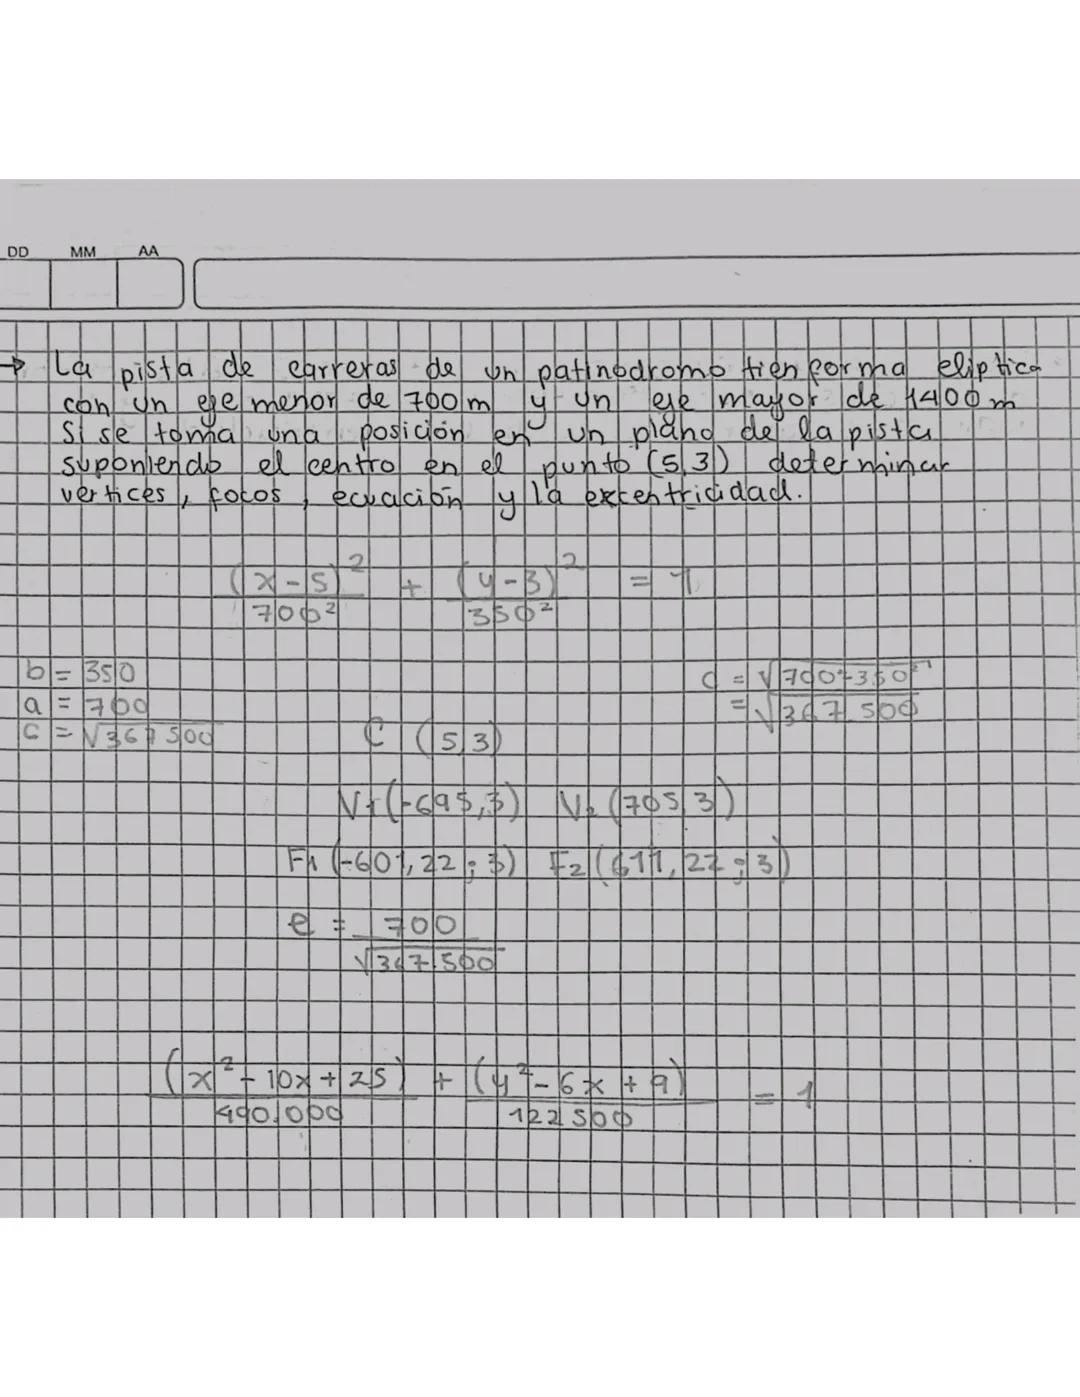 DD MM AA
→ La pista de carreras de un patinodromo tien forma eliptica
con un eje menor de 700m y un eje mayor de 1400m
Si se toma una posición en un plano de la pista
suponiendo el centro en el punto (5,3) determinar
vertices, focos, ecuación y la excentricidad.
(x-5)²/700² + (y-3)²/350² = 1
b = 350
a = 700
c = √367500
c = √700²-350²
= √367500
C (5,3)
V1(-695,3) V2(705,3)
F1(-601,22;3) F2(611,22;3)
e = 700/√367.500
(x²-10x+25)/490.000 + (y²-6x+9)/122500 = 1